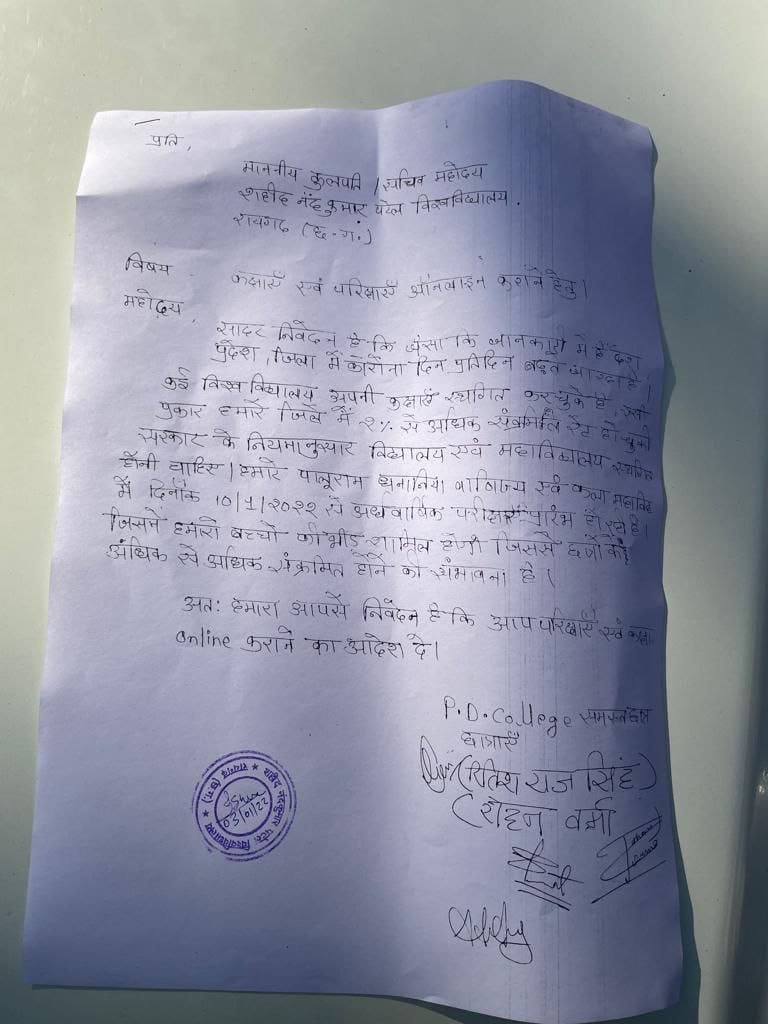 प्रति,
माननीय कुलपति / सचिव महोदय
शहीद नंदकुमार पटेल विश्वविद्यालय.
रायगढ (छ.ग.)
विषय कक्षाएँ एवं परिक्षाएँ ऑनलाइन कराने हेतु।
महोदय
सादर निवेदन है कि जैसा कि जानकारी में है देश
प्रदेश, जिला में कोरोना दिन प्रतिदिन बढ़ते जा रहा है।
कई विश्वविद्यालय अपनी कक्षाएँ स्थगित कर चुके है,
प्रकार हमारे जिले में २% से अधिक संक्रमित रेट हो चुकी
सरकार के नियमानुसार विद्यालय एवं महाविद्यालय स्थगित
होनी चाहिए। हमारे पालूराम धनानिया वाणिज्य एवं कला
में दिनाँक 10/1/2022 से अर्धवार्षिक परीक्षाएँ प्रारंभ हो रहा है।
जिसमें हमारो बच्चो की भीड़ शामिल होगी जिससे
अधिक से अधिक संक्रमित होने की संभावना है।
अत: हमारा आपसे निवेदन है कि आप परिक्षाएँ एवं कक्षा
online कराने का आदेश दे।
P.D. College समस्त
छात्राएँ
(रितेश राज सिंह)
(रोहन वर्मा)
शहीद नंदकुमार पटेल विश्वविद्यालय ★ रायगढ़ (छ.ग.) ★
03/01/22